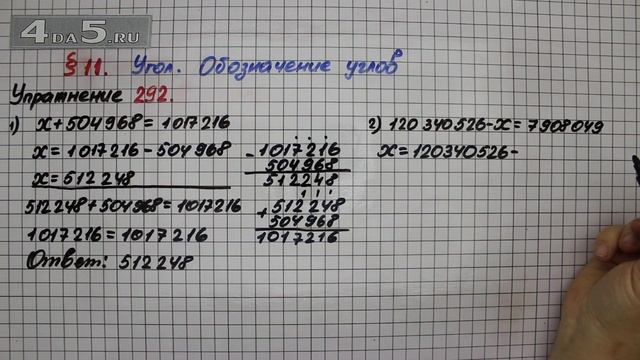 4да5.ru
§ 11. Угол. Обозначение углов
Упражнение 292.
1) x + 504 968 = 1017 216
x = 1017 216 - 504 968
x = 512 248
512 248 + 504 968 = 1017 216
1017 216 = 1017 216
Ответ: 512 248
- 1017216
504968
512248
1 1 1
+ 512248
504968
1017216
2) 120 340 526 - x = 7 908 049
x = 120340526 -